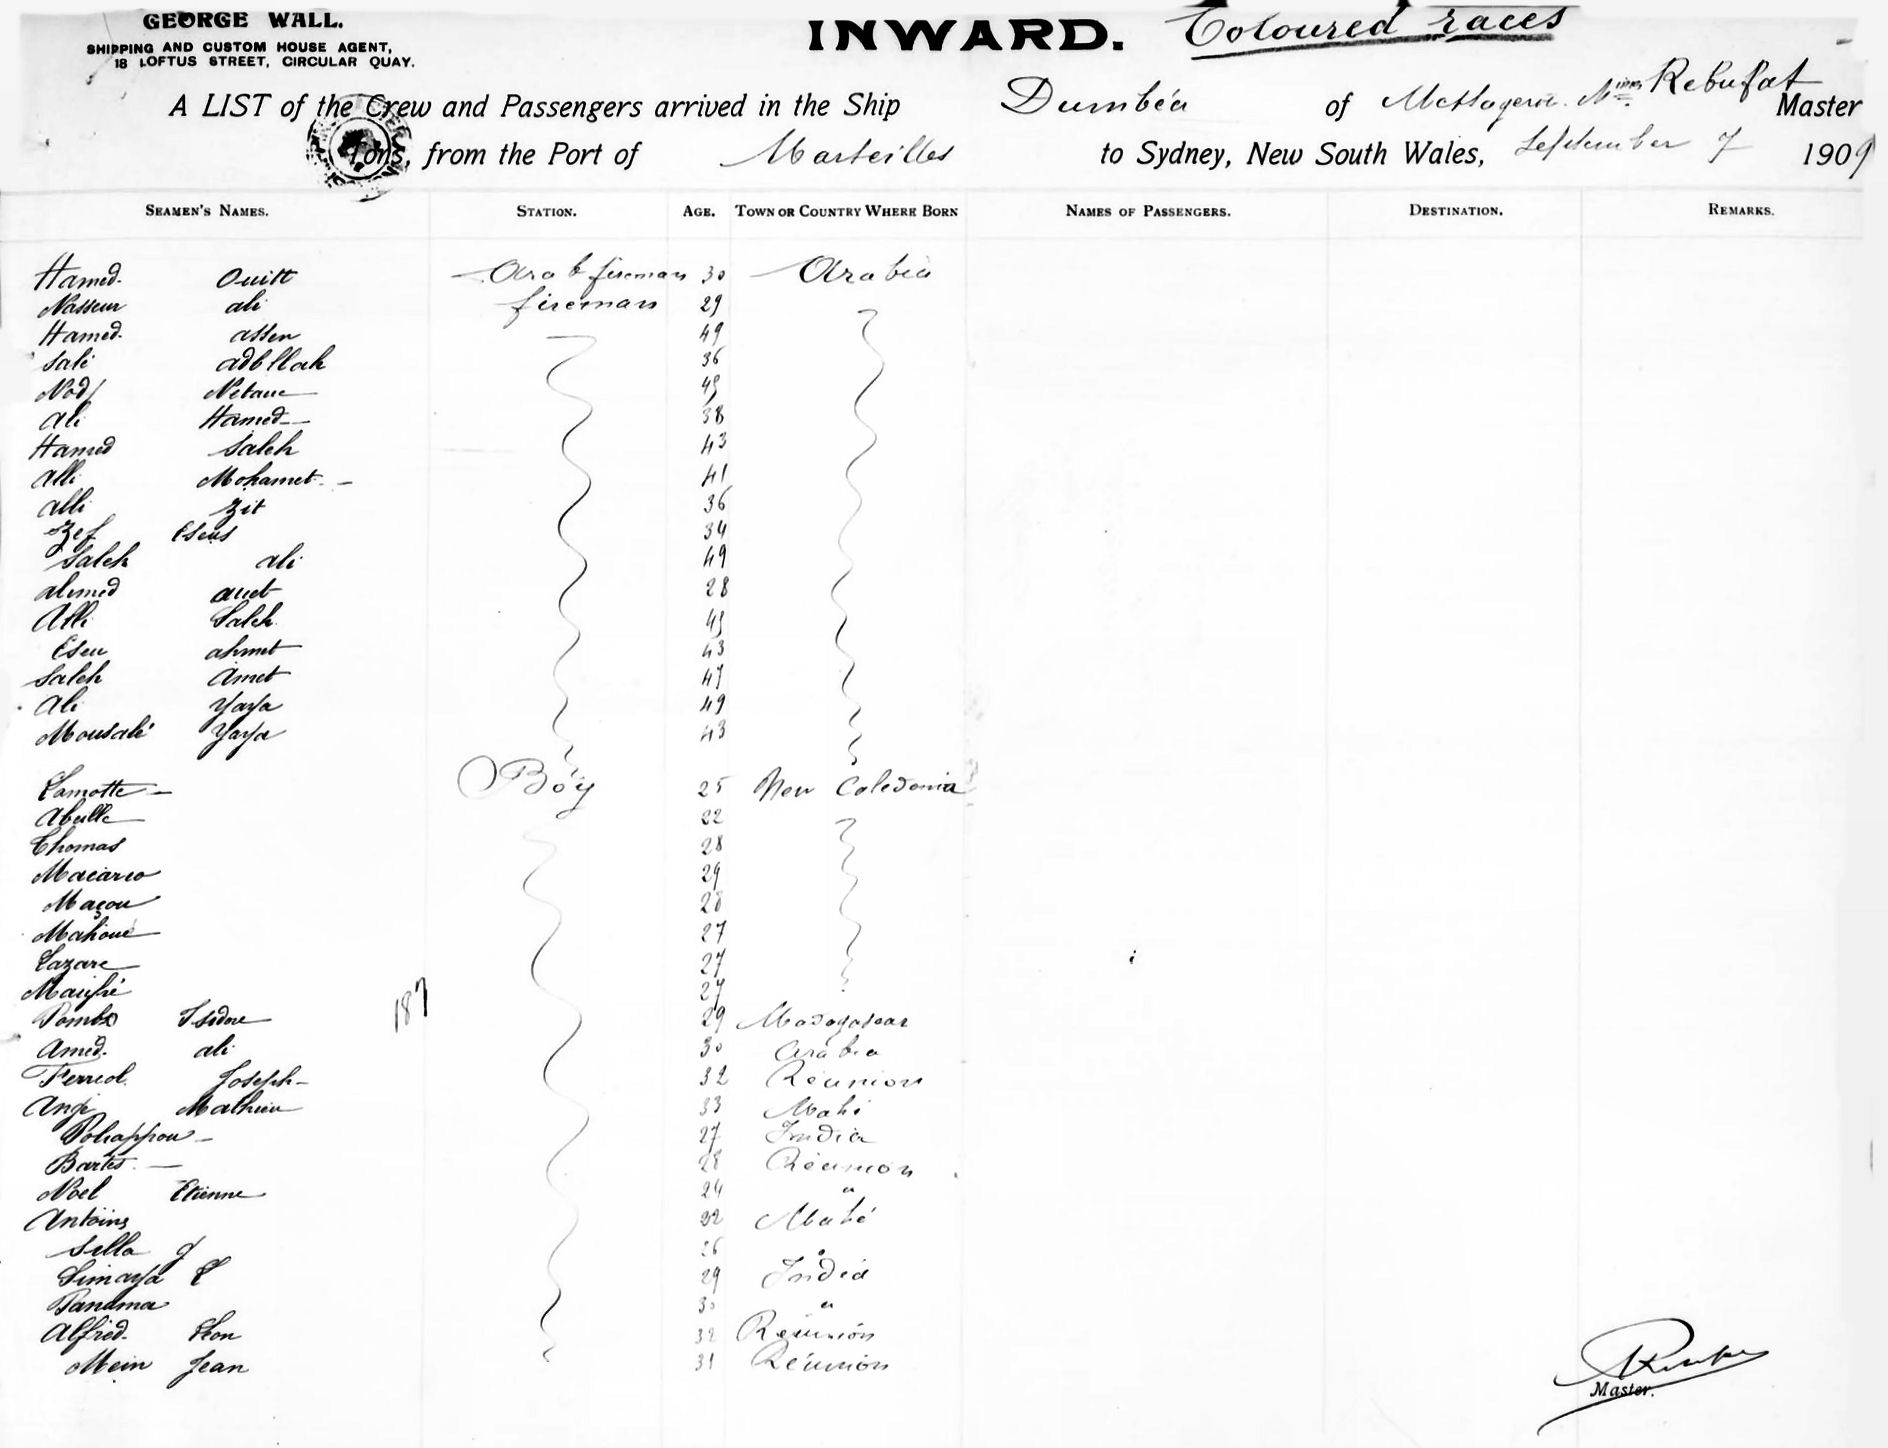 GEORGE WALL.
SHIPPING AND CUSTOM HOUSE AGENT,
18 LOFTUS STREET, CIRCULAR QUAY.
INWARD. Coloured races
A LIST of the Crew and Passengers arrived in the Ship Dumbéa of Messagerie Rebufat Master
Tons, from the Port of Marseilles to Sydney, New South Wales, September 7 1909
SEAMEN'S NAMES. STATION. AGE. TOWN OR COUNTRY WHERE BORN NAMES OF PASSENGERS. DESTINATION. REMARKS.
Hamed. Arab fireman 30 Arabia
Nasseur ali fireman 29
Hamed. assen 49
Sali adbllah 36
Netane
Ali Hamed 38
Hamed Saleh 43
Alli Mohamet 41
alli Zit 36
Zef 34
Saleh ali 49
ahmed 28
Alli Saleh
Eseu ahmet 43
Saleh Amet 47
Ali Yaya 49
Mousalé Yaya 43
Lamotte Boy 25 New Caledonia
Abeille 22
Thomas 28
Macareo 29
Maçon
Mahoué 27
Lazare 27
27
187
Isidore 29 Madagascar
Amed. ali 30 Arabia
Ferreol Joseph 32 Réunion
Ange Mathieu 33 Mahé
27 India
Bartes 28 Réunion
Noel Etienne 24 "
Antoins 22 Mahé
Sella J 26 "
Simaya L 29 India
Panama 30 "
Alfred. Leon 32 Réunion
Mein Jean 31 Réunion
Master.